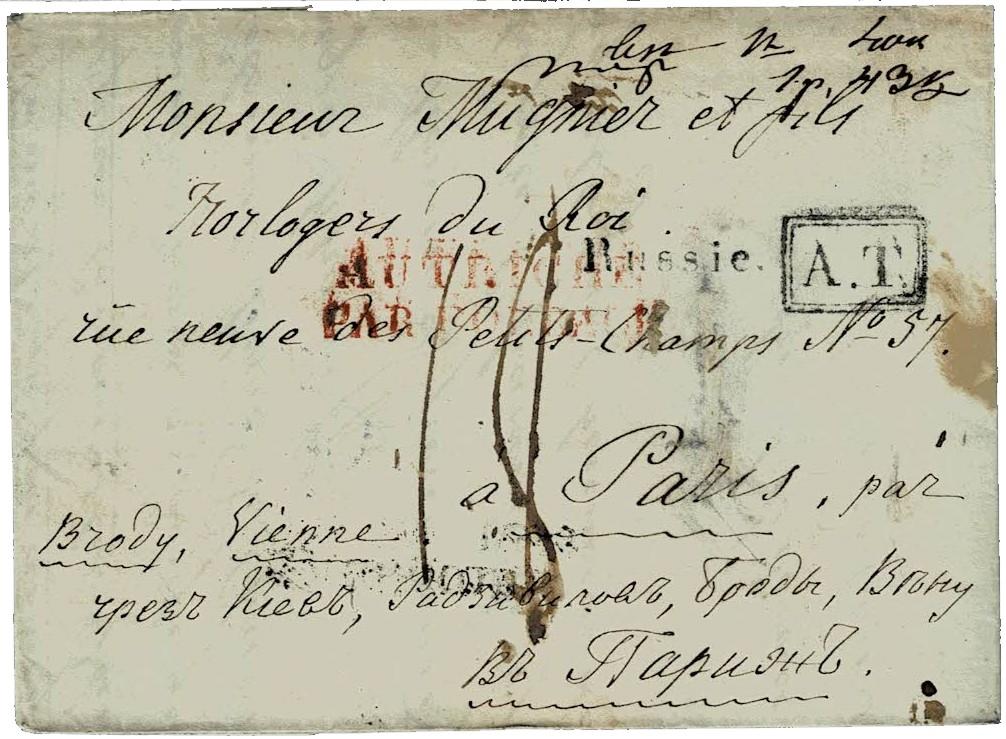 1р. 43к
Monsieur Mugnier et fils
Horlogers du Roi.
AUTRICHE
PAR
Russie.
A.T.
rüe neuve des Petits-Champs No 57.
a Paris, par
Brody, Vienne
чрезъ Кіевъ, Радзивиловъ, Броды, Вѣну
въ Парижъ.